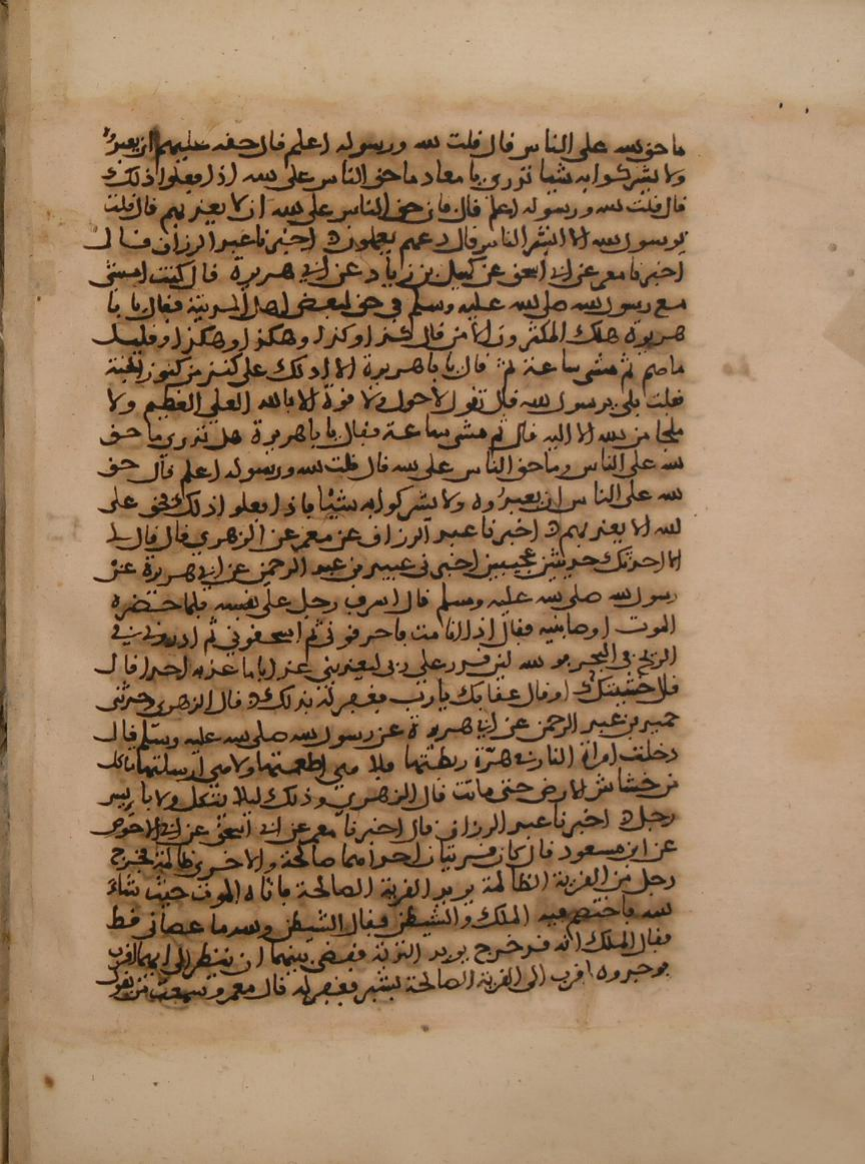 ما حق لله على الناس قال قلت لله ورسوله اعلم قال حقه عليهم ان يعبدوه
ولا يشركوا به شيا تدري يا معاد ما حق الناس على لله اذا فعلوا ذلك
قال قلت لله ورسوله اعلم قال فان حق الناس على لله ان لا يعذبهم قال قلت
يرسول لله الا ابشر الناس قال دعهم يعملون اخبرنا عبد الرزاق قال
اخبرنا معمر عن ابي اسحق عن كميل بن زياد عن ابي هريرة قال كنت امشي
مع رسول لله صلى لله عليه وسلم في لبعض اهل المدينة فقال يا با
هريرة هلك المكثرون الا من قال كذا وكذا وهكذا وهكذا وقليل
ما هم ثم مشى ساعة ثم قال يا باهريرة الا ادلك على كنز من كنوز الجنة
قلت بلى يرسول لله قال تقول لاحول ولا قوة الا بالله العلي العظيم ولا
ملجا من لله الا اليه قال ثم مشى ساعة فقال يا باهريرة هل تدري ما حق
لله على الناس وما حق الناس على لله قال قلت لله ورسوله اعلم قال حق
لله على الناس ان يعبدوه ولا يشركوا به شيئا فاذا فعلوا ذلك فحق على
لله الا يعذبهم اخبرنا عبد الرزاق عن معمر عن الزهري قال قال لي
الا احدثك حديثين عجيبين اخبرني حميد بن عبد الرحمن عن ابي هريرة عن
رسول لله صلى لله عليه وسلم قال اسرف رجل على نفسه فلما حضره
الموت اوصا بنيه فقال اذا انا مت فاحرقوني ثم اسحقوني ثم اذروني في
الريح في البحر فو لله لين قدر علي ربي ليعذبني عذابا ما عذبه احدا قال
قال خشيتك او قال عقابك يا رب فغفر له بذلك قال الزهري وحدثني
حميد بن عبد الرحمن عن ابي هريرة عن رسول لله صلى لله عليه وسلم قال
دخلت امراة النار في هرة ربطتها فلا هي اطعمتها ولا هي ارسلتها تاكل
من خشاش الارض حتى ماتت قال الزهري وذلك ليلا يتكل ولا يايس
رجل اخبرنا عبد الرزاق قال اخبرنا معمر عن ابي اسحق عن ابي الاحوص
عن ابن مسعود قال كان قريتان احداهما صالحة والاخرى ظالمة فخرج
رجل من القرية الظالمة يريد القرية الصالحة فاتاه الموت حيث شاء
لله فاختصم فيه الملك والشيطن فقال الشيطن ولله ما عصاني قط
فقال الملك انه قد خرج يريد التوبة فقضي بينهما ان ينظر الى ايهما اقرب
فوجدوه اقرب الى القرية الصالحة بشبر فغفر له قال معمر وسمعت من يقول